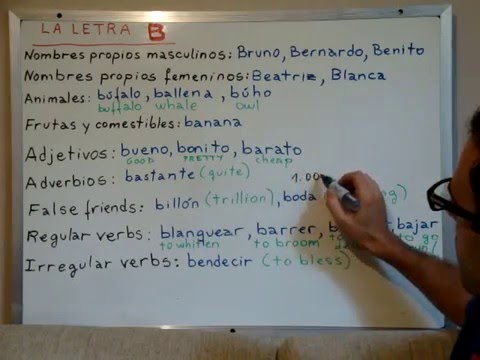 LA LETRA B
Nombres propios masculinos: Bruno, Bernardo, Benito
Nombres propios femeninos: Beatriz, Blanca
Animales: búfalo, ballena, búho
buffalo whale owl
Frutas y comestibles: banana
Adjetivos: bueno, bonito, barato
GOOD PRETTY cheap
Adverbios: bastante (quite) 1.00
False friends: billón (trillion), boda
Regular verbs: blanquear, barrer, bajar
to whiten to broom to go
Irregular verbs: bendecir (to bless)